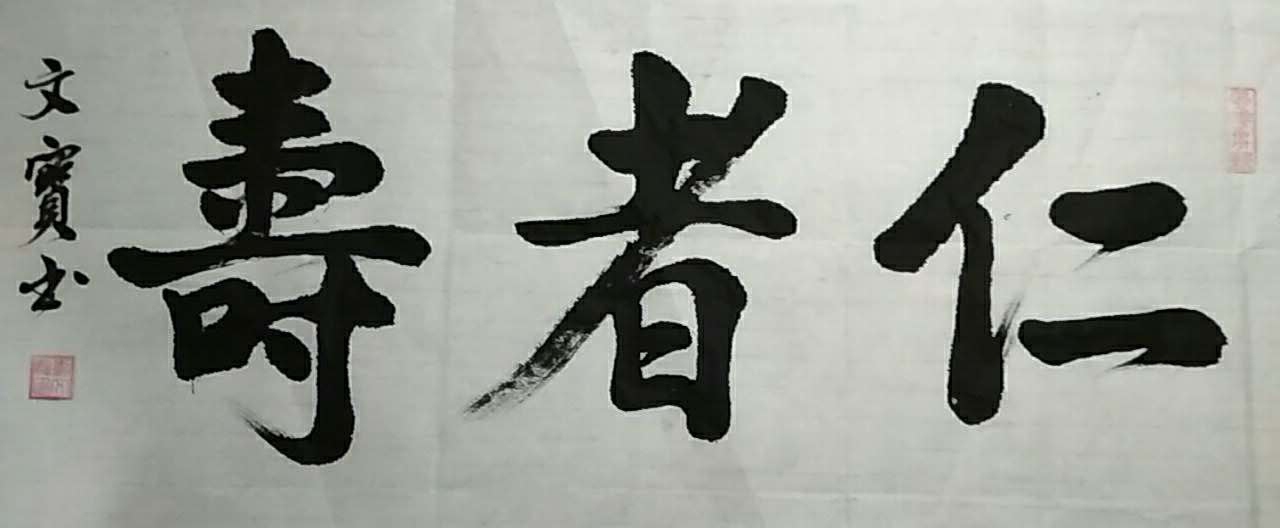 仁者壽
文寶书